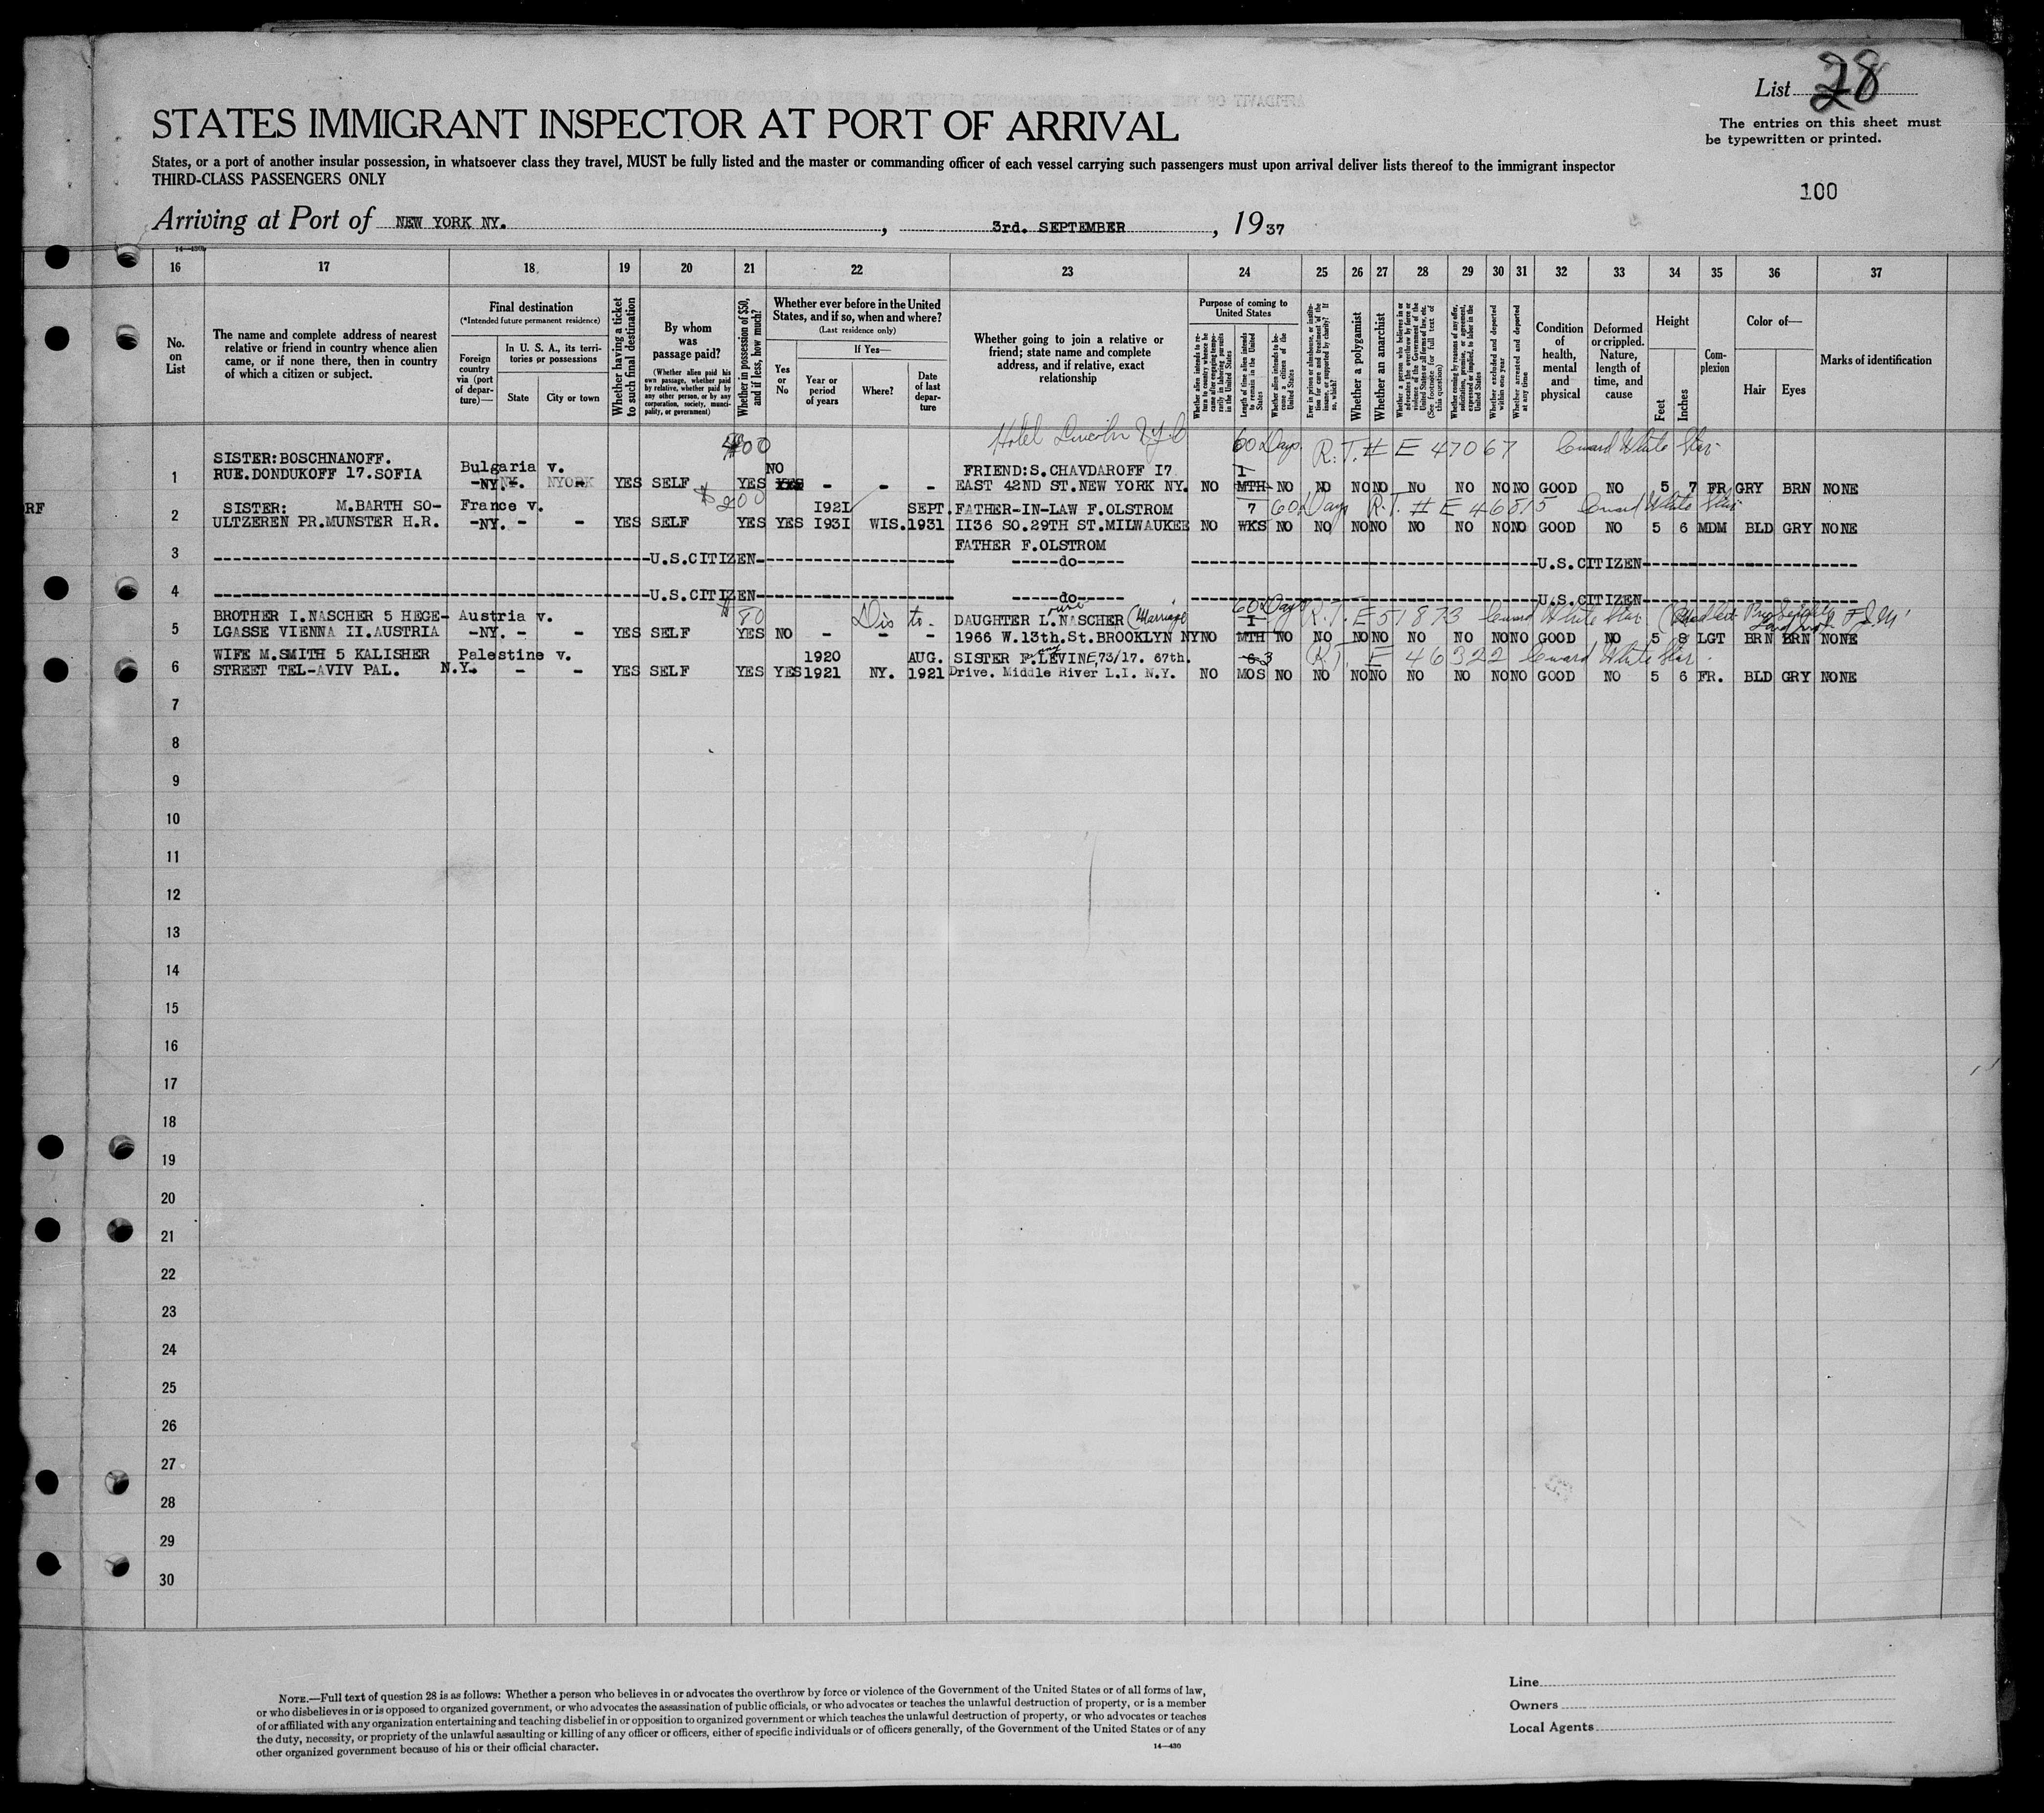 List 28
The entries on this sheet must
be typewritten or printed.
STATES IMMIGRANT INSPECTOR AT PORT OF ARRIVAL
States, or a port of another insular possession, in whatsoever class they travel, MUST be fully listed and the master or commanding officer of each vessel carrying such passengers must upon arrival deliver lists thereof to the immigrant inspector
THIRD-CLASS PASSENGERS ONLY
100
Arriving at Port of NEW YORK NY. , 3rd. SEPTEMBER , 19 37
14-430
16 17 18 19 20 21 22 23 24 25 26 27 28 29 30 31 32 33 34 35 36 37
No. on List
The name and complete address of nearest relative or friend in country whence alien came, or if none there, then in country of which a citizen or subject.
Final destination
(*Intended future permanent residence)
Foreign country via (port of departure)—
In U. S. A., its territories or possessions
State
City or town
Whether having a ticket to such final destination
By whom was passage paid?
(Whether alien paid his own passage, whether paid by relative, whether paid by any other person, or by any corporation, society, municipality, or government)
Whether in possession of $50, and if less, how much?
Whether ever before in the United States, and if so, when and where?
(Last residence only)
Yes or No
If Yes—
Year or period of years
Where?
Date of last departure
Whether going to join a relative or friend; state name and complete address, and if relative, exact relationship
Purpose of coming to United States
Whether alien intends to return to country whence he came after engaging temporarily in laboring pursuits in the United States
Length of time alien intends to remain in the United States
Whether alien intends to become a citizen of the United States
Ever in prison or almshouse, or institution for care and treatment of the insane, or supported by charity? If so, which?
Whether a polygamist
Whether an anarchist
Whether a person who believes in or advocates the overthrow by force or violence of the Government of the United States or all forms of law, etc. (See footnote for full text of this question)
Whether coming by reasons of any offer, solicitation, promise, or agreement, expressed or implied, to labor in the United States
Whether excluded and deported within one year
Whether arrested and deported at any time
Condition of health, mental and physical
Deformed or crippled. Nature, length of time, and cause
Height
Feet
Inches
Complexion
Color of—
Hair
Eyes
Marks of identification
$400 Hotel Lincoln NYC 60 Days R.T. # E 47067 Cunard White Star
SISTER:BOSCHNANOFF. Bulgaria v. NO FRIEND:S.CHAVDAROFF I7 I
1 RUE.DONDUKOFF 17.SOFIA -NY. NY. NYORK YES SELF YES YES - - - EAST 42ND ST.NEW YORK NY. NO MTH NO NO NO NO NO NO NO NO GOOD NO 5 7 FR GRY BRN NONE
$200 60 Days R.T. # E 46815 Cunard White Star
RF
SISTER: M.BARTH SO- France v. I92I SEPT. FATHER-IN-LAW F.OLSTROM 7
2 ULTZEREN PR.MUNSTER H.R. -NY. - - YES SELF YES YES I93I WIS. 1931 II36 SO.29TH ST.MILWAUKEE NO WKS NO NO NO NO NO NO NO NO GOOD NO 5 6 MDM BLD GRY NONE
FATHER F.OLSTROM
3 U.S.CITIZEN -----do------ U.S.CITIZEN
4 U.S.CITIZEN -----do------ U.S.CITIZEN
$80 60 Days R.T. E 51873 Cunard White Star
BROTHER I.NASCHER 5 HEGE- Austria v. DAUGHTER L.NASCHER (Marriage I
5 LGASSE VIENNA II.AUSTRIA -NY. - - YES SELF YES NO - - - 1966 W.13th.St.BROOKLYN NY NO MTH NO NO NO NO NO NO NO NO GOOD NO 5 8 LGT BRN BRN NONE
WIFE M.SMITH 5 KALISHER Palestine v. 1920 AUG. SISTER F.LEVINE,73/17. 67th. 6 3 R.T. E 46322 Cunard White Star
6 STREET TEL-AVIV PAL. N.Y. - - YES SELF YES YES 1921 NY. 1921 Drive. Middle River L.I. N.Y. NO MOS NO NO NO NO NO NO NO NO GOOD NO 5 6 FR. BLD GRY NONE
7
8
9
10
11
12
13
14
15
16
17
18
19
20
21
22
23
24
25
26
27
28
29
30
NOTE.—Full text of question 28 is as follows: Whether a person who believes in or advocates the overthrow by force or violence of the Government of the United States or of all forms of law,
or who disbelieves in or is opposed to organized government, or who advocates the assassination of public officials, or who advocates or teaches the unlawful destruction of property, or is a member
of or affiliated with any organization entertaining and teaching disbelief in or opposition to organized government or which teaches the unlawful destruction of property, or who advocates or teaches
the duty, necessity, or propriety of the unlawful assaulting or killing of any officer or officers, either of specific individuals or of officers generally, of the Government of the United States or of any
other organized government because of his or their official character.
14-430
Line
Owners
Local Agents